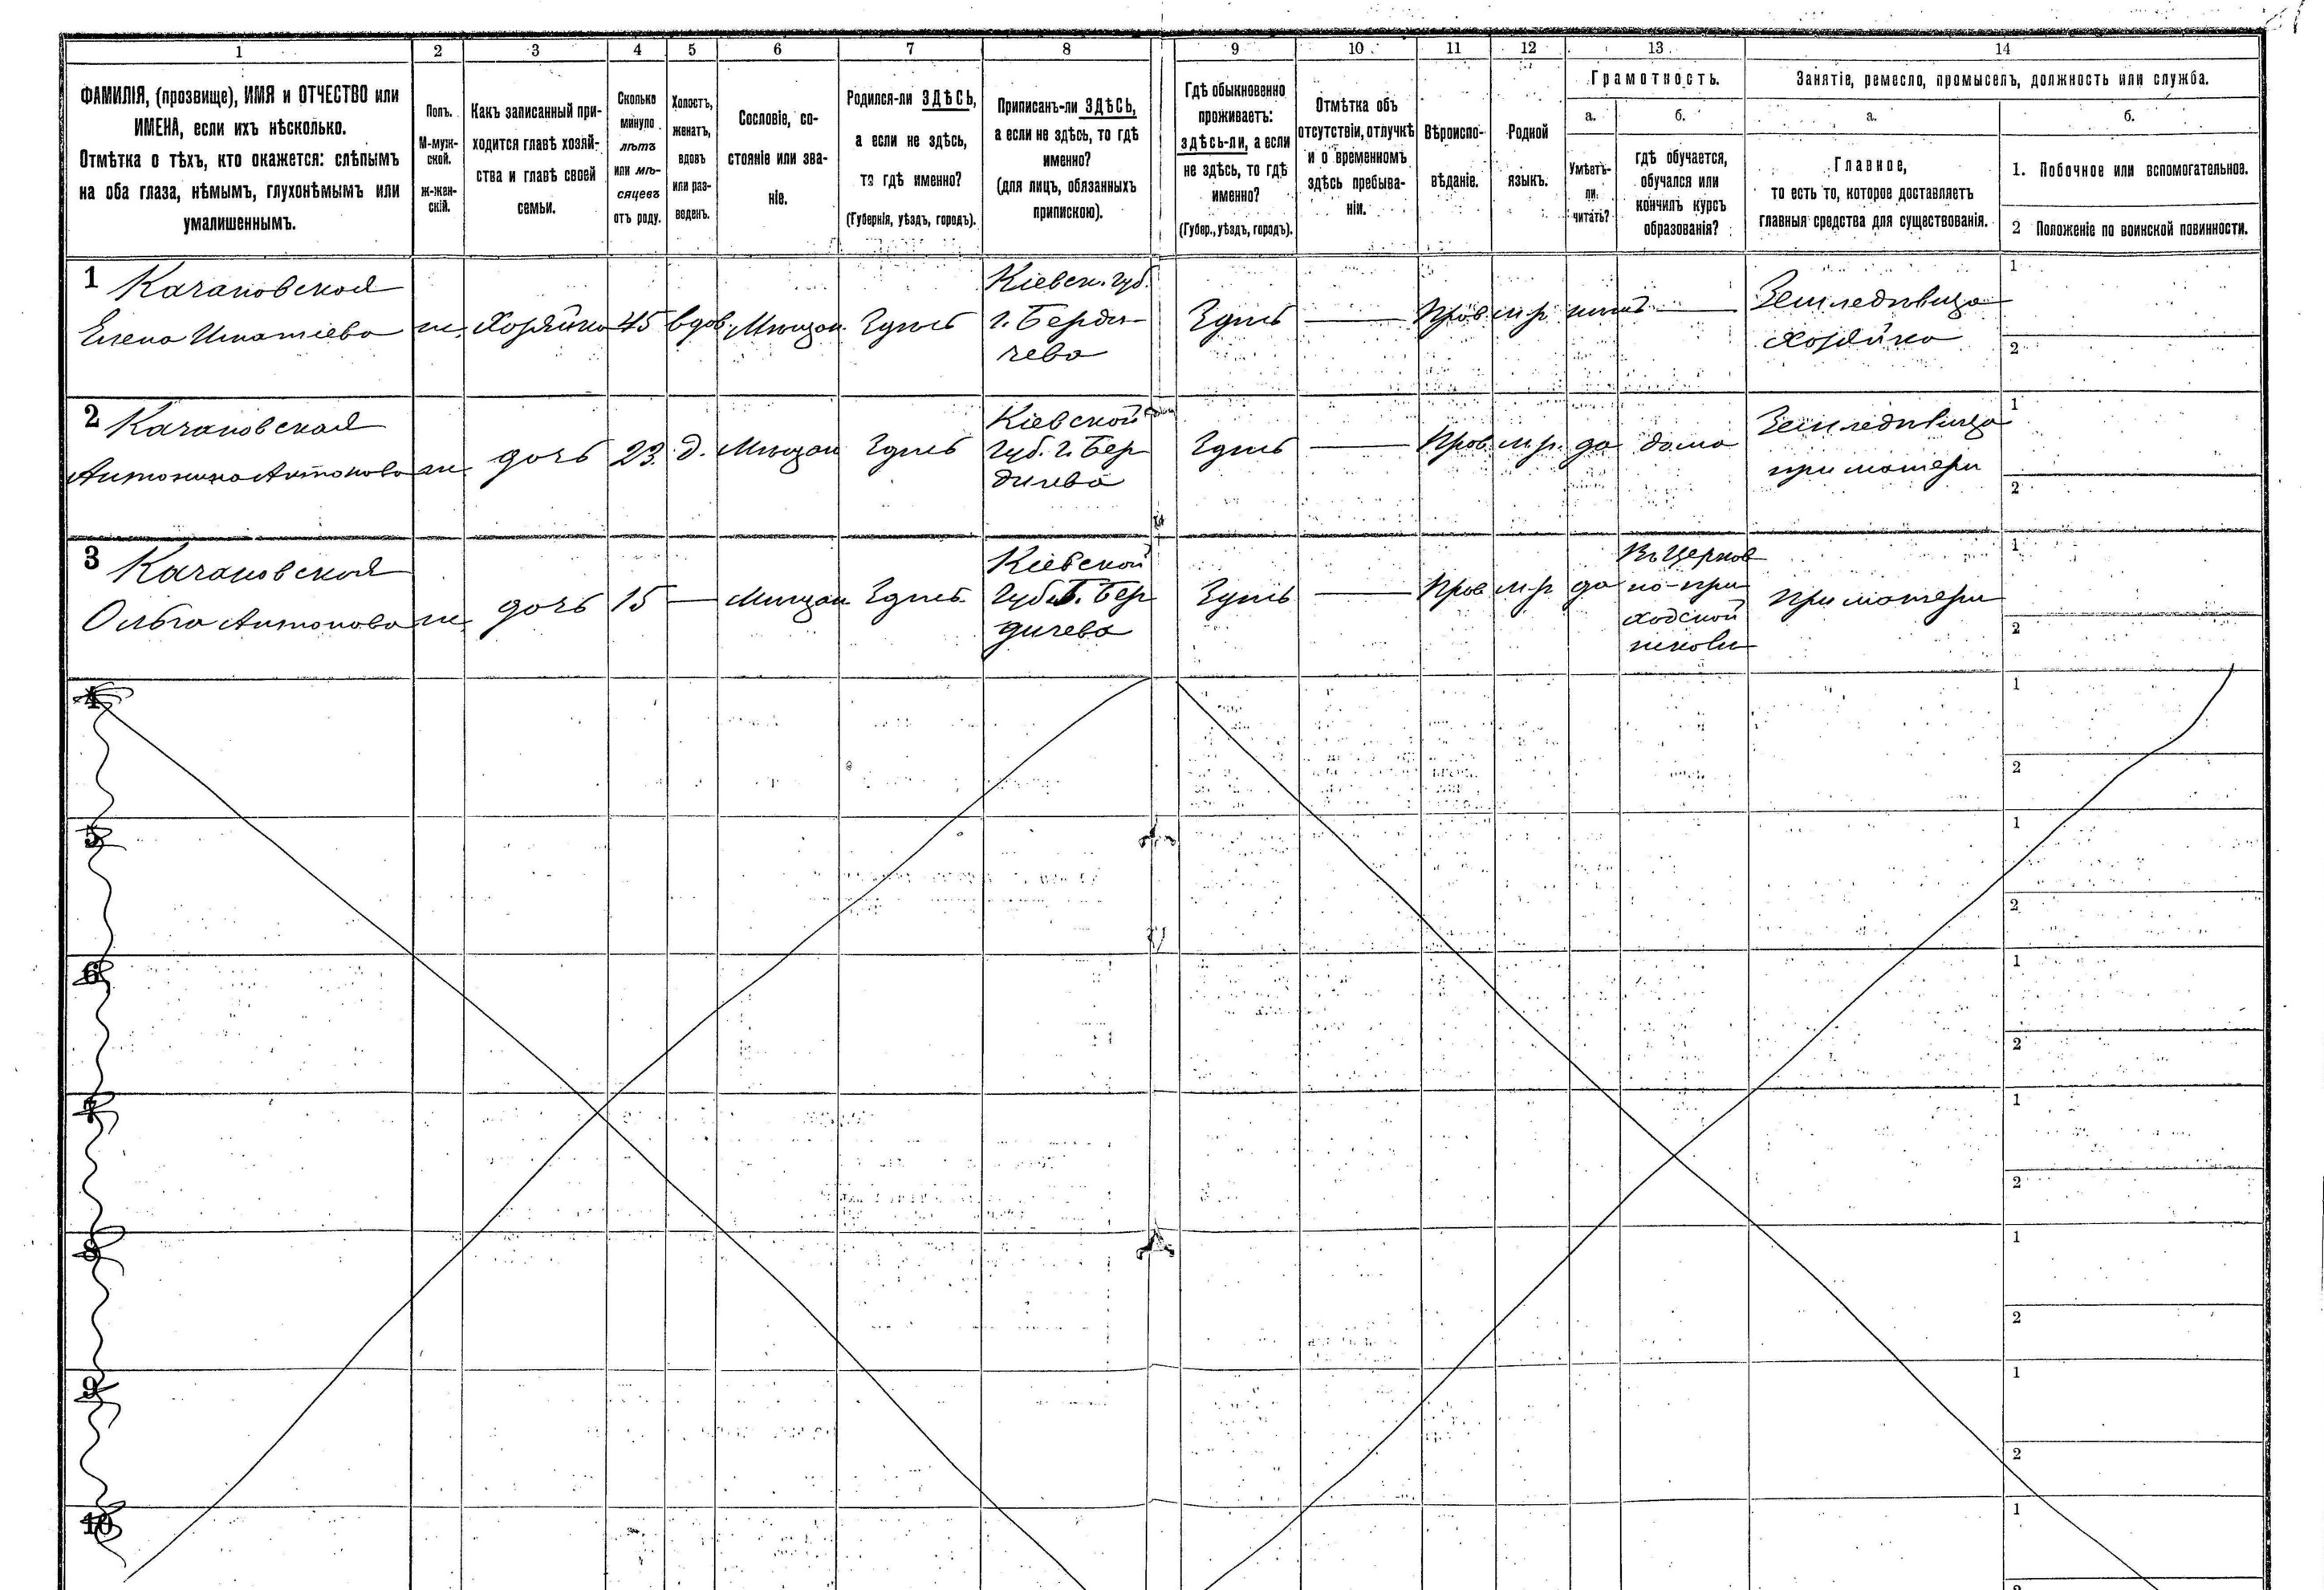 1 2 3 4 5 6 7 8 9 10 11 12 13 14
ФАМИЛІЯ, (прозвище), ИМЯ и ОТЧЕСТВО или
ИМЕНА, если ихъ нѣсколько.
Отмѣтка о тѣхъ, кто окажется: слѣпымъ
на оба глаза, нѣмымъ, глухонѣмымъ или
умалишеннымъ.
Полъ.
М-муж-
ской.
ж-жен-
скій.
Какъ записанный при-
ходится главѣ хозяй-
ства и главѣ своей
семьи.
Сколько
минуло
лѣтъ
или мѣ-
сяцевъ
отъ роду.
Холостъ,
женатъ,
вдовъ
или раз-
веденъ.
Сословіе, со-
стояніе или зва-
ніе.
Родился-ли ЗДѢСЬ,
а если не здѣсь,
то гдѣ именно?
(Губернія, уѣздъ, городъ).
Приписанъ-ли ЗДѢСЬ,
а если не здѣсь, то гдѣ
именно?
(для лицъ, обязанныхъ
припискою).
Гдѣ обыкновенно
проживаетъ:
здѣсь-ли, а если
не здѣсь, то гдѣ
именно?
(Губер., уѣздъ, городъ).
Отмѣтка объ
отсутствіи, отлучкѣ
и о временномъ
здѣсь пребыва-
ніи.
Вѣроиспо-
вѣданіе.
Родной
языкъ.
Грамотность.
а.
Умѣетъ-
ли
читать?
б.
гдѣ обучается,
обучался или
кончилъ курсъ
образованія?
Занятіе, ремесло, промыселъ, должность или служба.
а.
Главное,
то есть то, которое доставляетъ
главныя средства для существованія.
б.
1. Побочное или вспомогательное.
2 Положеніе по воинской повинности.
1 Качановская
Елена Игнатіева
ж.
Хозяйка
45
вдов.
Мѣщан.
Здѣсь
Кіевск. губ.
г. Берди-
чева
Здѣсь
Прав
м.р
нѣтъ
Земледѣлица
хозяйка
1
2
2 Качановская
Антонина Антонова
ж.
дочь
23.
д.
Мѣщан
Здѣсь
Кіевской
губ. г. Бер
дичева
Здѣсь
Прав.
м.р.
да
дома
Земледѣлица
при матери
1
2
3 Качановская
Ольга Антонова
ж.
дочь
15
Мѣщан
Здѣсь
Кіевской
губ. г. Бер
дичева
Здѣсь
Прав
м.р
да
Въ Церков
но-при
ходской
школѣ
при матери
1
2
4
1
2
5
1
2
6
1
2
7
1
2
8
1
2
9
1
2
10
1
2